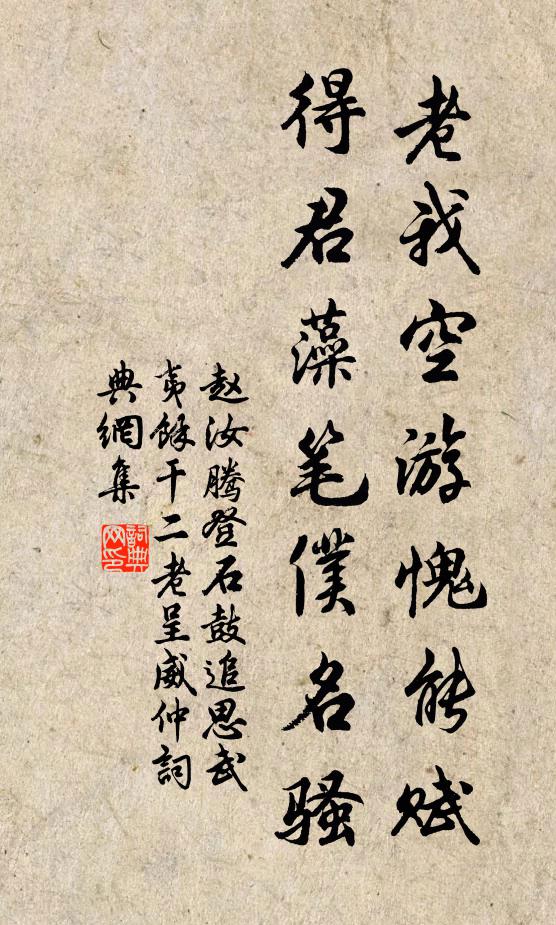 老我空游愧能赋
得君藻笔僕名骚
赵汝腾登石鼓追思武
夷馀干二老呈威仲詞
典網集
詞典网印